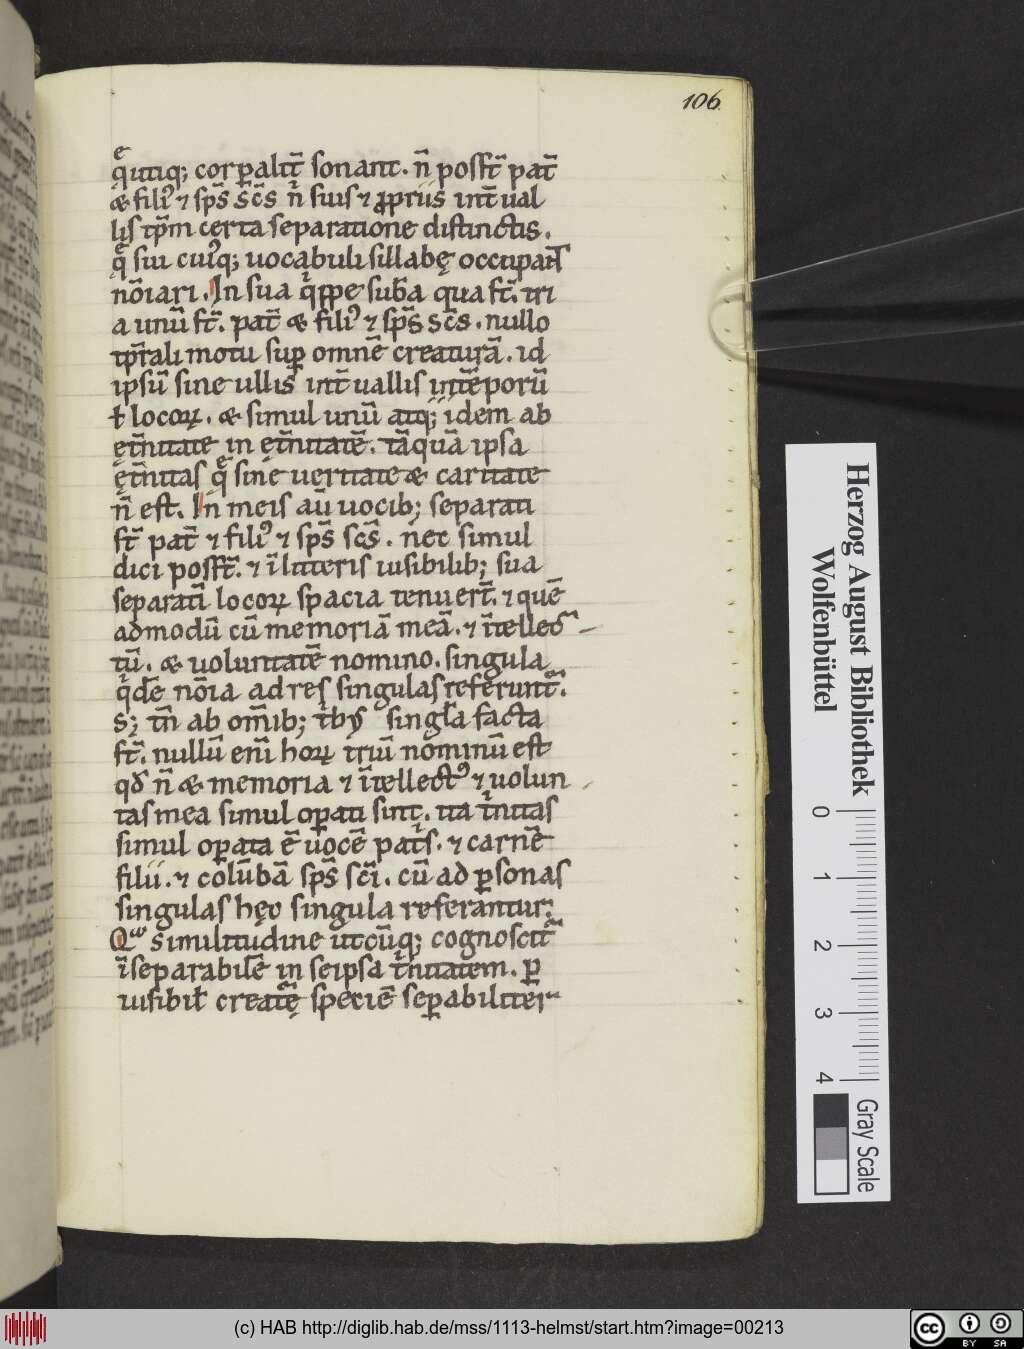 106
qͤ utiq; corꝑalit̄ sonant. n̄ posst̄ pat̄
& filiꝰ ⁊ sp̄s sc̄s n̄ suis ⁊ ꝓpriis int̄ual
lis tp̄m certa separatione distinctis.
qͤ sui cuiꝰq; uocabuli sillabę occupant
nōiari. In sua qⁱppe sub̄a qua st̄. tri
a unū st̄. pat̄ & filiꝰ ⁊ sp̄s sc̄s. nullo
tp̄rali motu suꝑ omnē creaturā. id
ipsū sine ullis int̄uallis intēporū
ł locoꝝ. & simul unū atq; idem ab
ęt̄nitate in ęt̄nitatē. tāquā ipsa
ęt̄nitas qͤ sine ueritate & caritate
n̄ est. In meis aū uocib; separati
st̄ pat̄ ⁊ filiꝰ ⁊ sp̄s sc̄s. nec simul
dici posst̄. ⁊ ī litteris uisibilib; sua
separatī locoꝝ spacia tenuert̄. ⁊ quē
admodū cū memoriā meā. ⁊ ītellec
tū. & uoluntatē nomino. singula
qⁱdē nōia ad res singulas referunt̄.
s; tn̄ ab om̄ib; tⁱby singl̄a facta
st̄. nullū enī hoꝝ triū nominū est
qd̄ n̄ & memoria ⁊ ītellectꝰ ⁊ uolun
tas mea simul oꝑati sint. ita tⁱnitas
simul oꝑata ē uocē pat̄s. ⁊ carnē
filii. ⁊ colūbā sp̄s sc̄i. cū ad ꝑsonas
singulas hęc singula referantur.
Qͦ similitudine utcūq; cognoscit̄
īseparabilē in seipsa tⁱnitatem. ꝑ
uisibil̄ creatę̄ speciē seꝑabiliter
Herzog August Bibliothek
Wolfenbüttel
0 1 2 3 4
Gray Scale
(c) HAB http://diglib.hab.de/mss/1113-helmst/start.htm?image=00213
cc BY SA